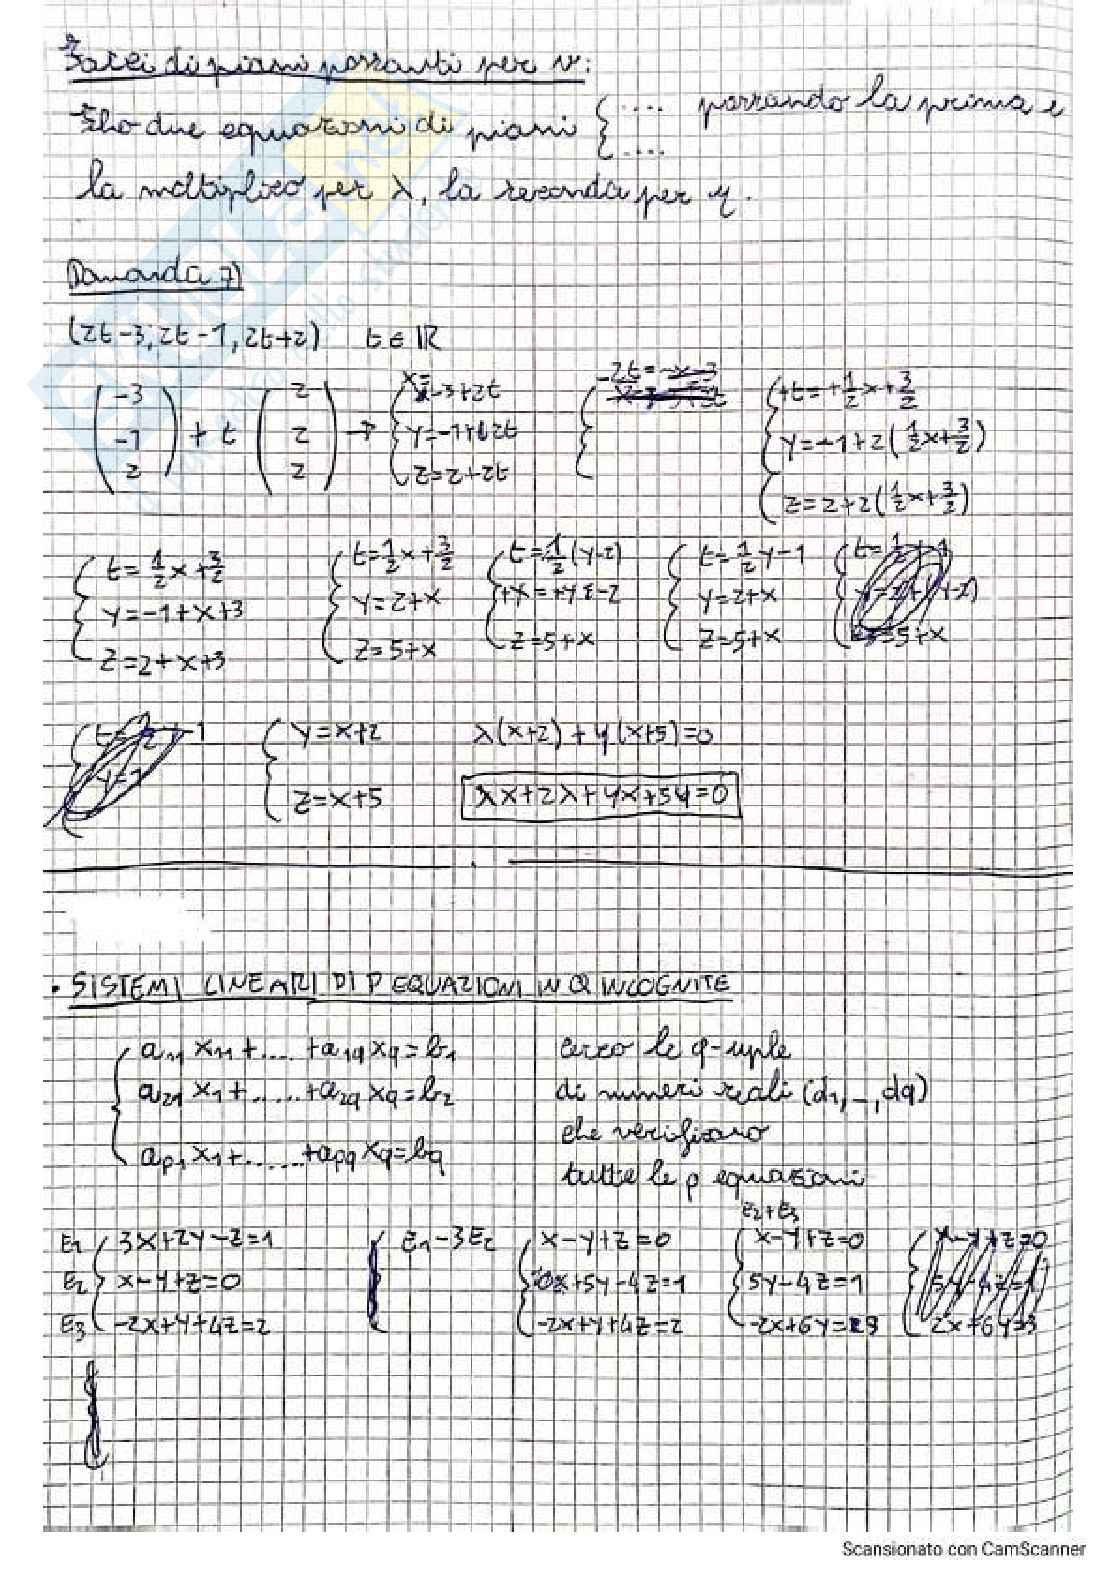 Fasci di piani passanti per v:
Ho due equazioni di piani { .... passando la prima e
....
la moltiplico per λ, la seconda per η.
Domanda 7)
(2t-3; 2t-1, 2t+2) t ∈ ℝ
(-3 -1 2) + t (2 2 2) → { x=-3+2t
y=-1+2t
z=2+2t
{ +t=+1/2x+3/2
y=-1+2(1/2x+3/2)
z=2+2(1/2x+3/2)
{ t=1/2x+3/2
y=-1+x+3
z=2+x+3
{ t=1/2x+3/2
y=2+x
z=5+x
{ t=1/2(y-2)
z=5+x
{ t=1/2y-1
y=2+x
z=5+x
{ y=x+2
z=x+5
λ(x+2)+η(x+5)=0
λx+2λ+ηx+5η=0
• SISTEMI LINEARI DI P EQUAZIONI IN Q INCOGNITE
{ a11 x11+....+a1q xq=b1
a21 x1+.....+a2q xq=b2
ap1 x1+......+apq xq=bq
cerco le q-uple
di numeri reali (d1,_,dq)
che verificano
tutte le p equazioni
E1 { 3x+2y-z=1
E2 x-y+z=0
E3 -2x+y+4z=2
E1-3E2
{ x-y+z=0
0x+5y-4z=1
-2x+y+4z=2
E2+E3
{ x-y+z=0
5y-4z=1
-2x+6y=3
Scansionato con CamScanner